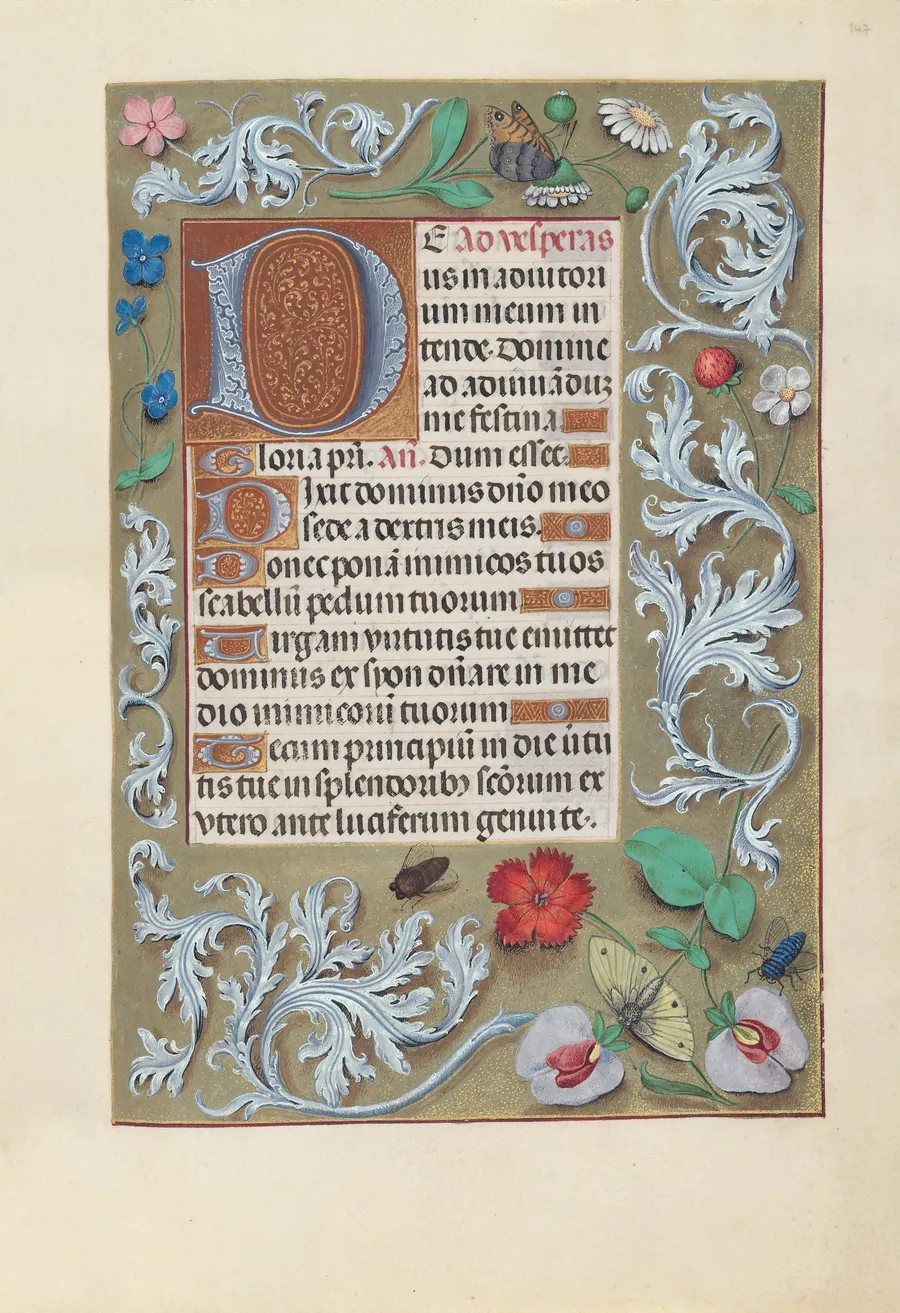 147
DE Ad vesperas
us in adiutori
um meum in
tende. Domine
ad adiuuāduz
me festina
Gloria pri. Añ. Dum esset.
Dixit dominus dño meo
sede a dextris meis.
Donec ponā inimicos tuos
scabellū pedum tuorum
Uirgam virtutis tue emittet
dominus ex syon dñare in me
dio inimicorū tuorum
Tecum principiū in die ūtu
tis tue in splendoribꝫ scōrum ex
vtero ante luciferum genui te.